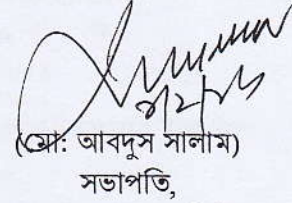 (মো: আবদুস সালাম)
সভাপতি,